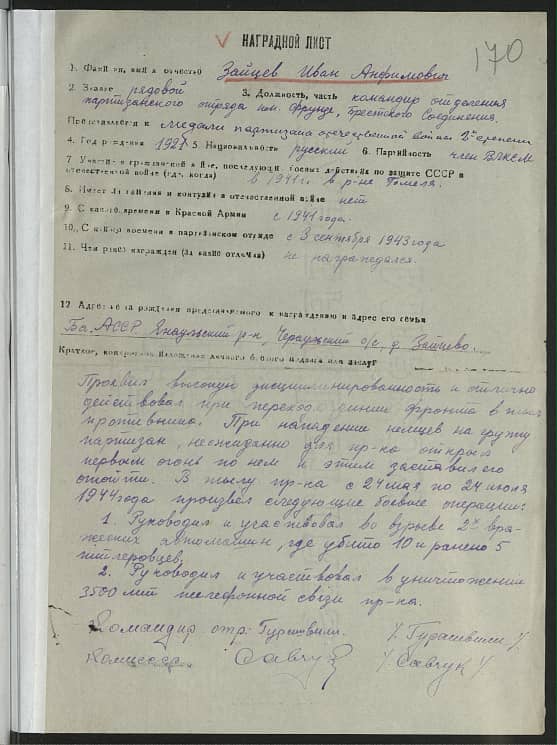 НАГРАДНОЙ ЛИСТ
170
1. Фамилия, имя и отчество Зайцев Иван Анфимович
2. Звание рядовой 3. Должность, часть командир отделения
партизанского отряда им. Фрунзе, Брестского Соединения.
Представляется к медали партизана отечественной войны 2й степени
4. Год рождения 5. Национальность русский 6. Партийность член ВЛКСМ
7. Участие в гражданской войне, последующих боевых действиях по защите СССР и
отечественной войне (где, когда) в 1941 г. в р-не Гомеля.
8. Имеет ли ранения и контузии в отечественной войне нет
9. С какого времени в Красной Армии с 1941 года.
10. С какого времени в партизанском отряде с 3 сентября 1943 года
11. Чем ранее награжден (за какие отличия) не награждался.
12. Адрес рождения представляемого к награждению и адрес его семьи
Баш. АССР, Янаульский р-н, с/с, д. Зайцево.
Краткое, конкретное изложение личного боевого подвига или заслуг
Проявил высокую дисциплинированность и отлично
действовал при переходе линии фронта в тыл
противника. При нападении немцев на группу
партизан, неожиданно для пр-ка открыл
первым огонь по нем и этим заставил его
отойти. В тылу пр-ка с 24 мая по 24 июля
1944 года произвел следующие боевые операции:
1. Руководил и участвовал во взрыве 2х вра-
жеских автомашин, где убито 10 и ранено 5
гитлеровцев.
2. Руководил и участвовал в уничтожении
3500 мет телефонной связи пр-ка.
Командир отр.
Комиссар Савчук /Савчук/